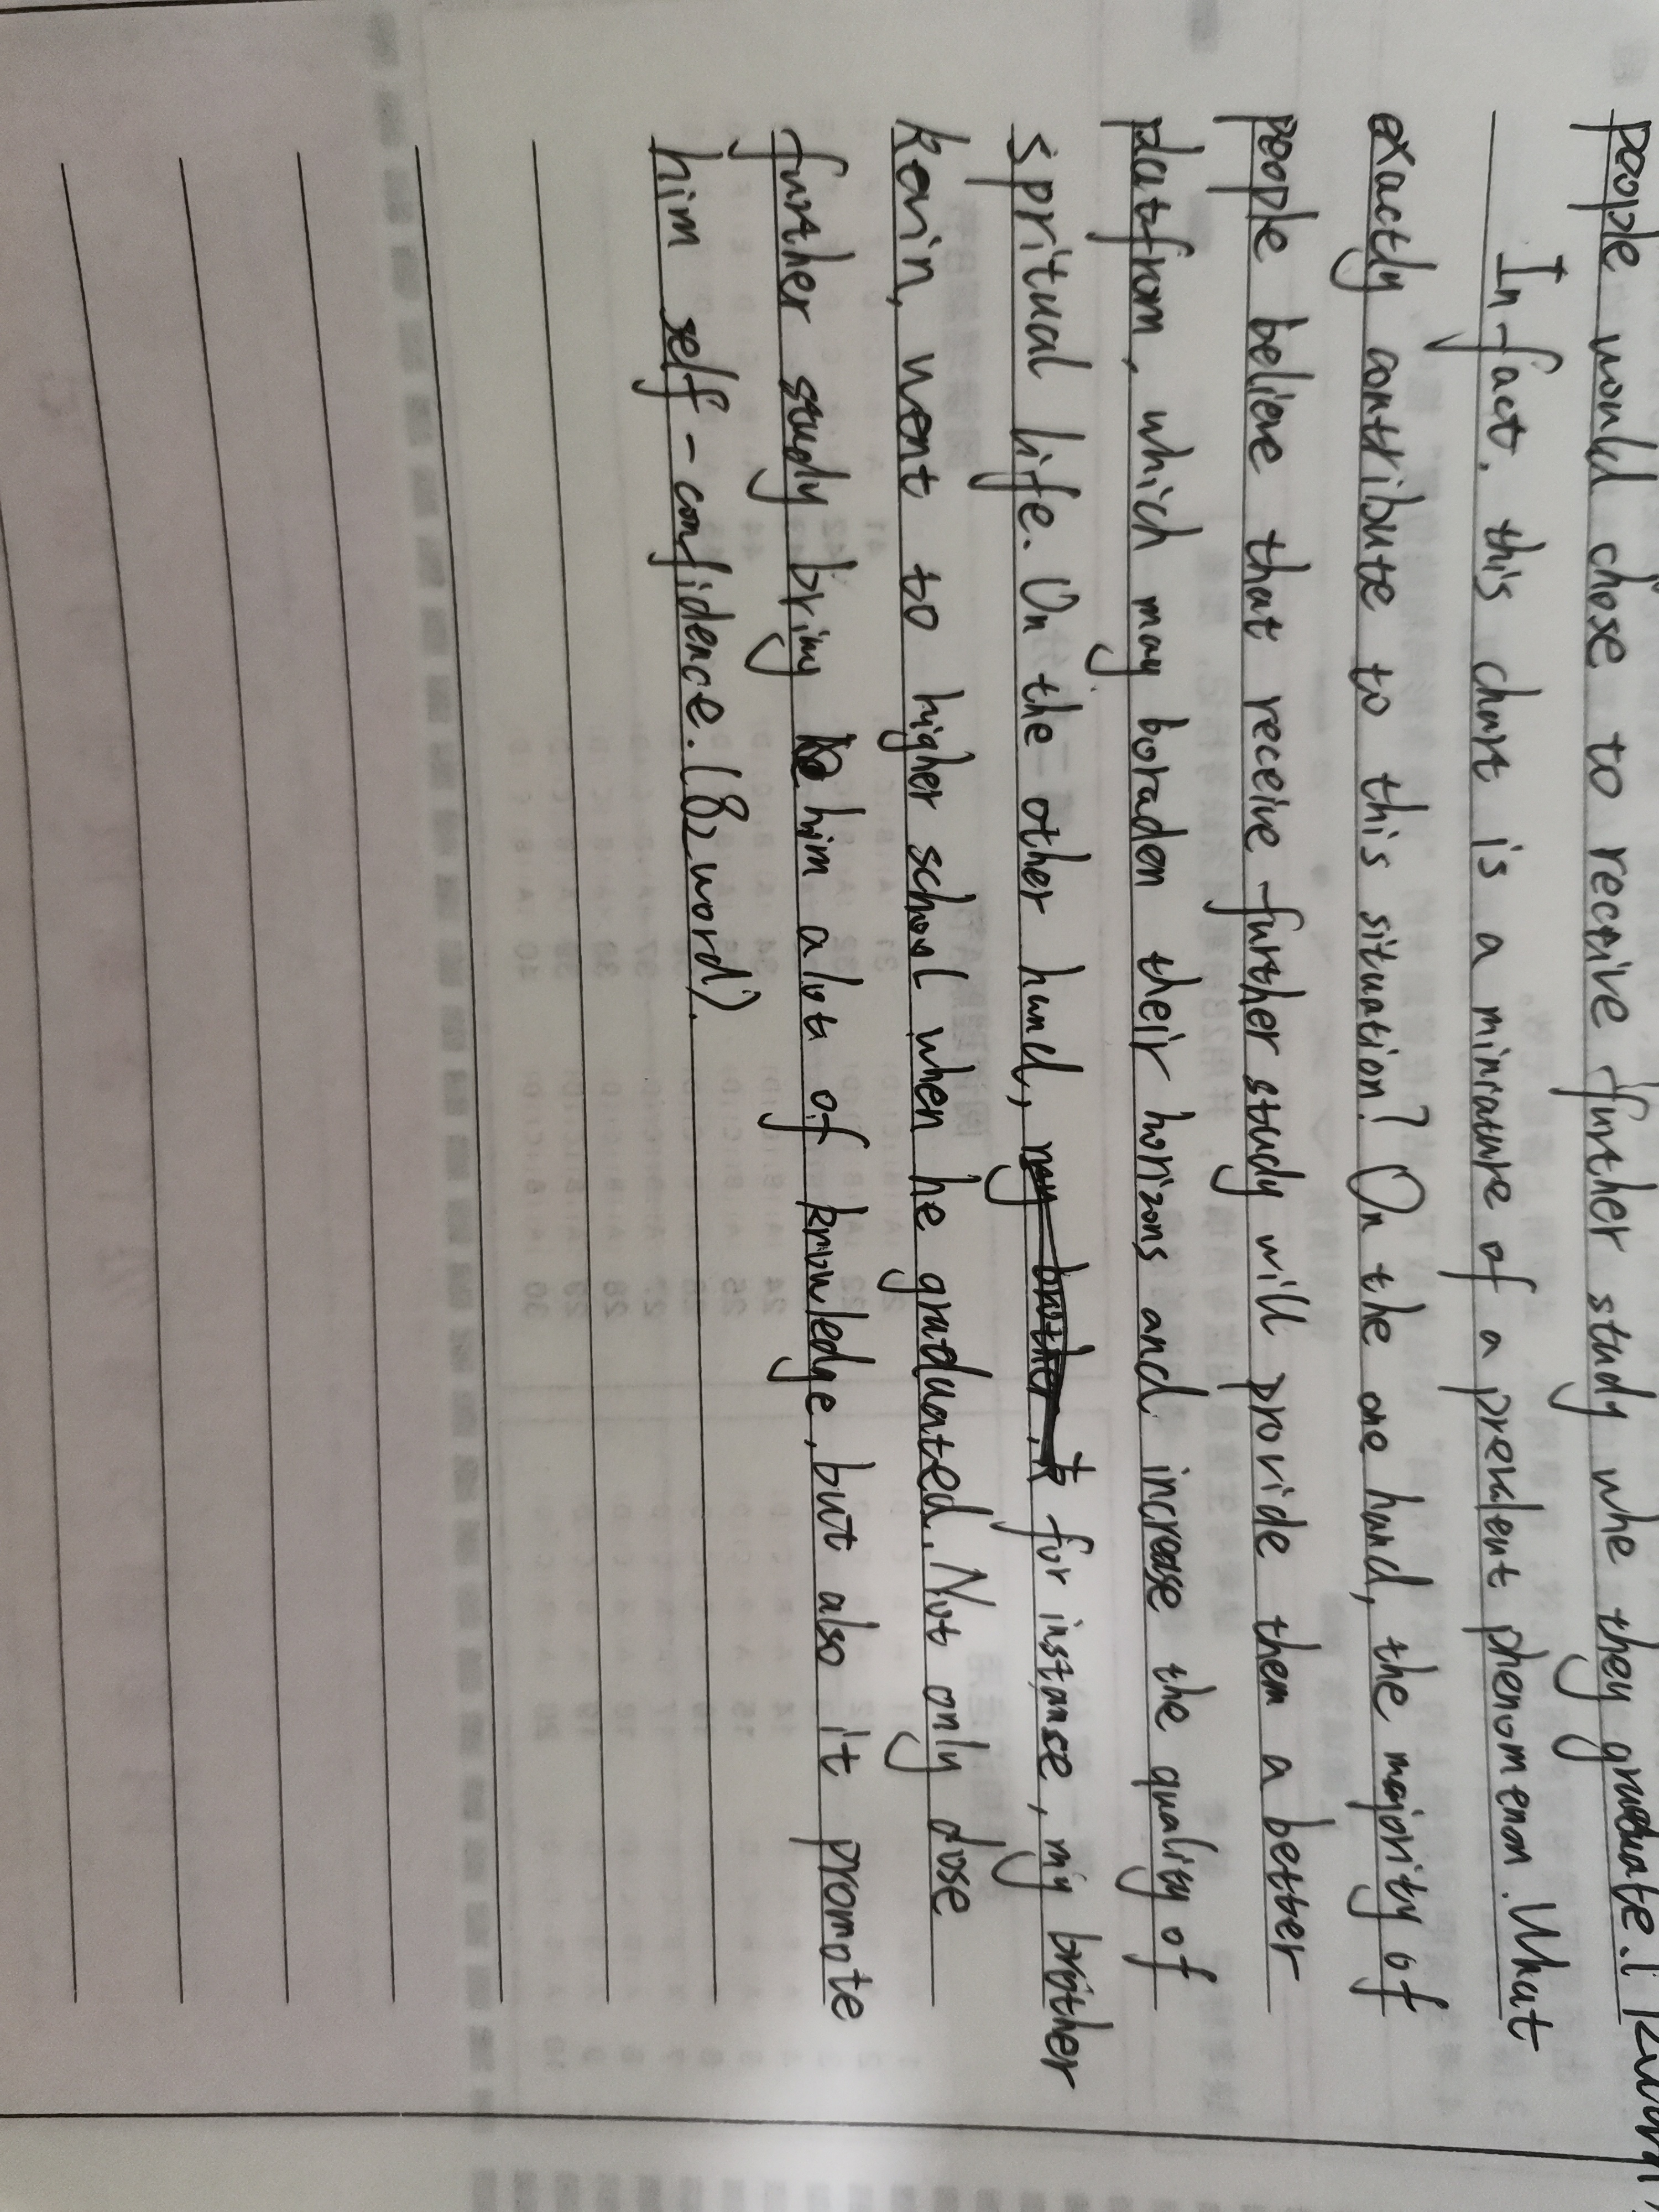 people would chose to receive further study whe they graduate. (120w
In fact, this chart is a miniature of a prevalent phenomenon. What
exactly contribute to this situation? On the one hand, the majority of
people believe that receive further study will provide them a better
platfrom, which may boraden their horizons and increase the quality of
spritual life. On the other hand, for instance, my brother
Kevin, went to higher school when he graduated. Not only dose
further study bring him a lot of knowledge, but also it promote
him self-confidence. (82 word).